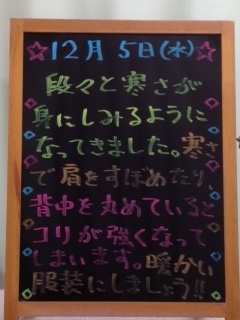 ☆12月 5日(水)☆
段々と寒さが
身にしみるように
なってきました。寒さ
で肩をすぼめたり、
背中を丸めていると
コリが強くなって
しまいます。暖かい
服装にしましょう!!